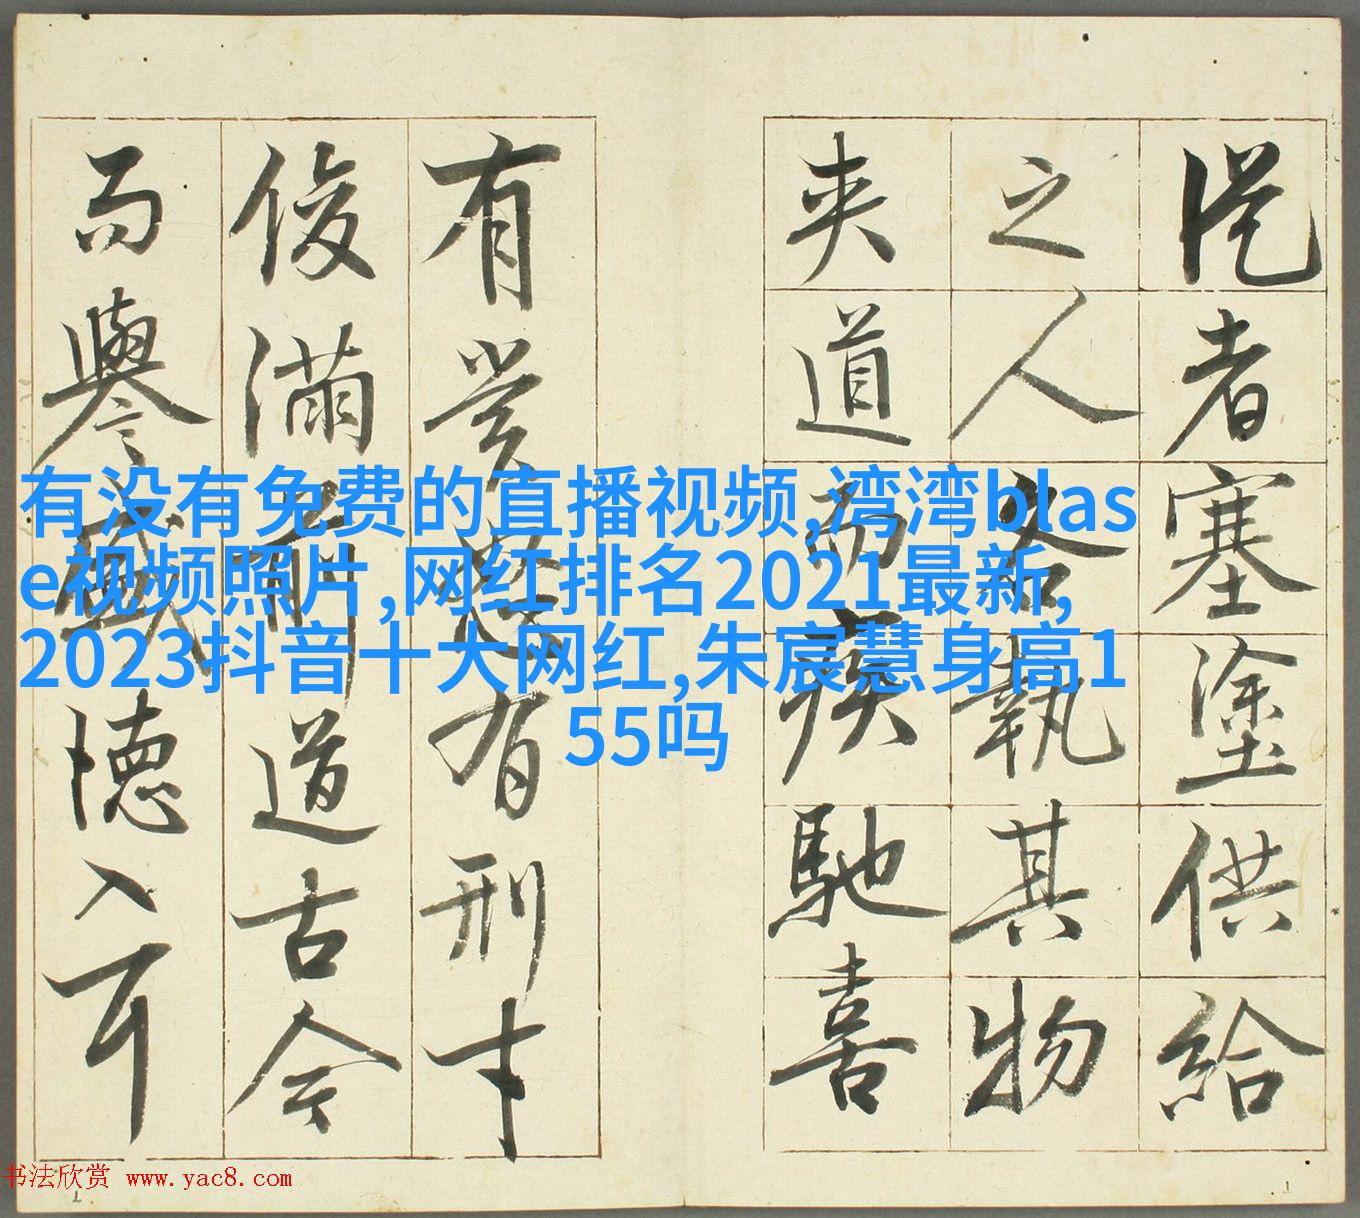 從者塞塗供給
之人各執其物
夾道而疾馳喜
有賞怒有刑才
俊滿前道古今
而譽盛德入耳
有没有免费的直播视频,湾湾blas
e视频照片,网红排名2021最新,
2023抖音十大网红,朱宸慧身高1
55吗
书法欣赏 www.yac8.com